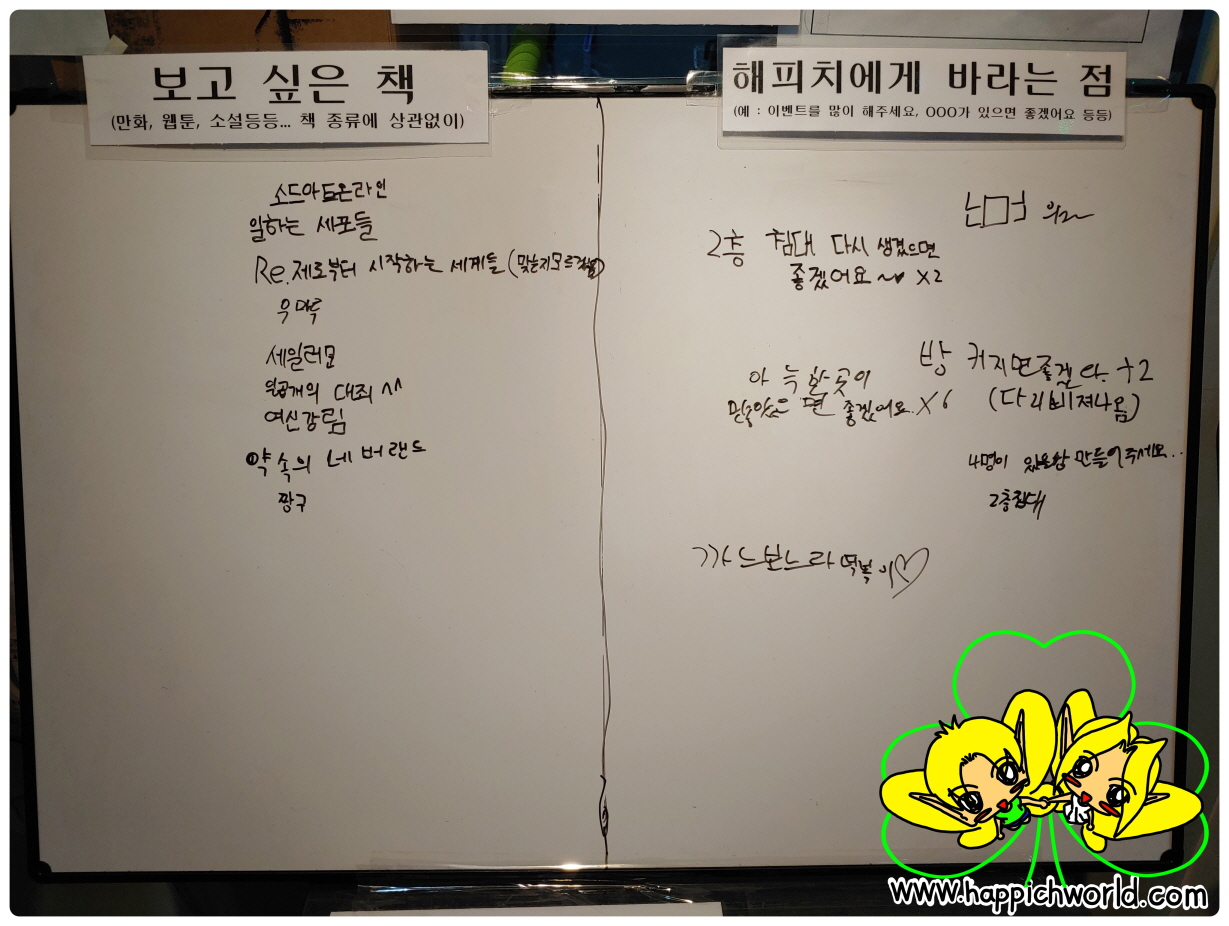 보고 싶은 책
(만화, 웹툰, 소설등등... 책 종류에 상관없이)
소드아트온라인
일하는 세포들
Re.제로부터 시작하는 세계들 (맞는지모르겠음)
우마루
세일러문
일곱개의 대죄 ^^
여신강림
약속의 네버랜드
짱구
해피치에게 바라는 점
(예 : 이벤트를 많이 해주세요, OOO가 있으면 좋겠어요 등등)
2층 침대 다시 생겼으면
좋겠어요~♥ X2
방 커지면좋겠다. +2
(다리삐져나옴)
아늑한곳이
면 좋겠어요. X6
4명이 있을방 만들어주세요..
2층침대
까느보느라 떡볶이♡
www.happichworld.com